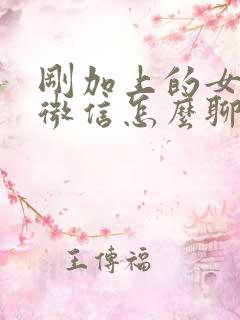 剛加上的女
微信怎麼聊
王傳福